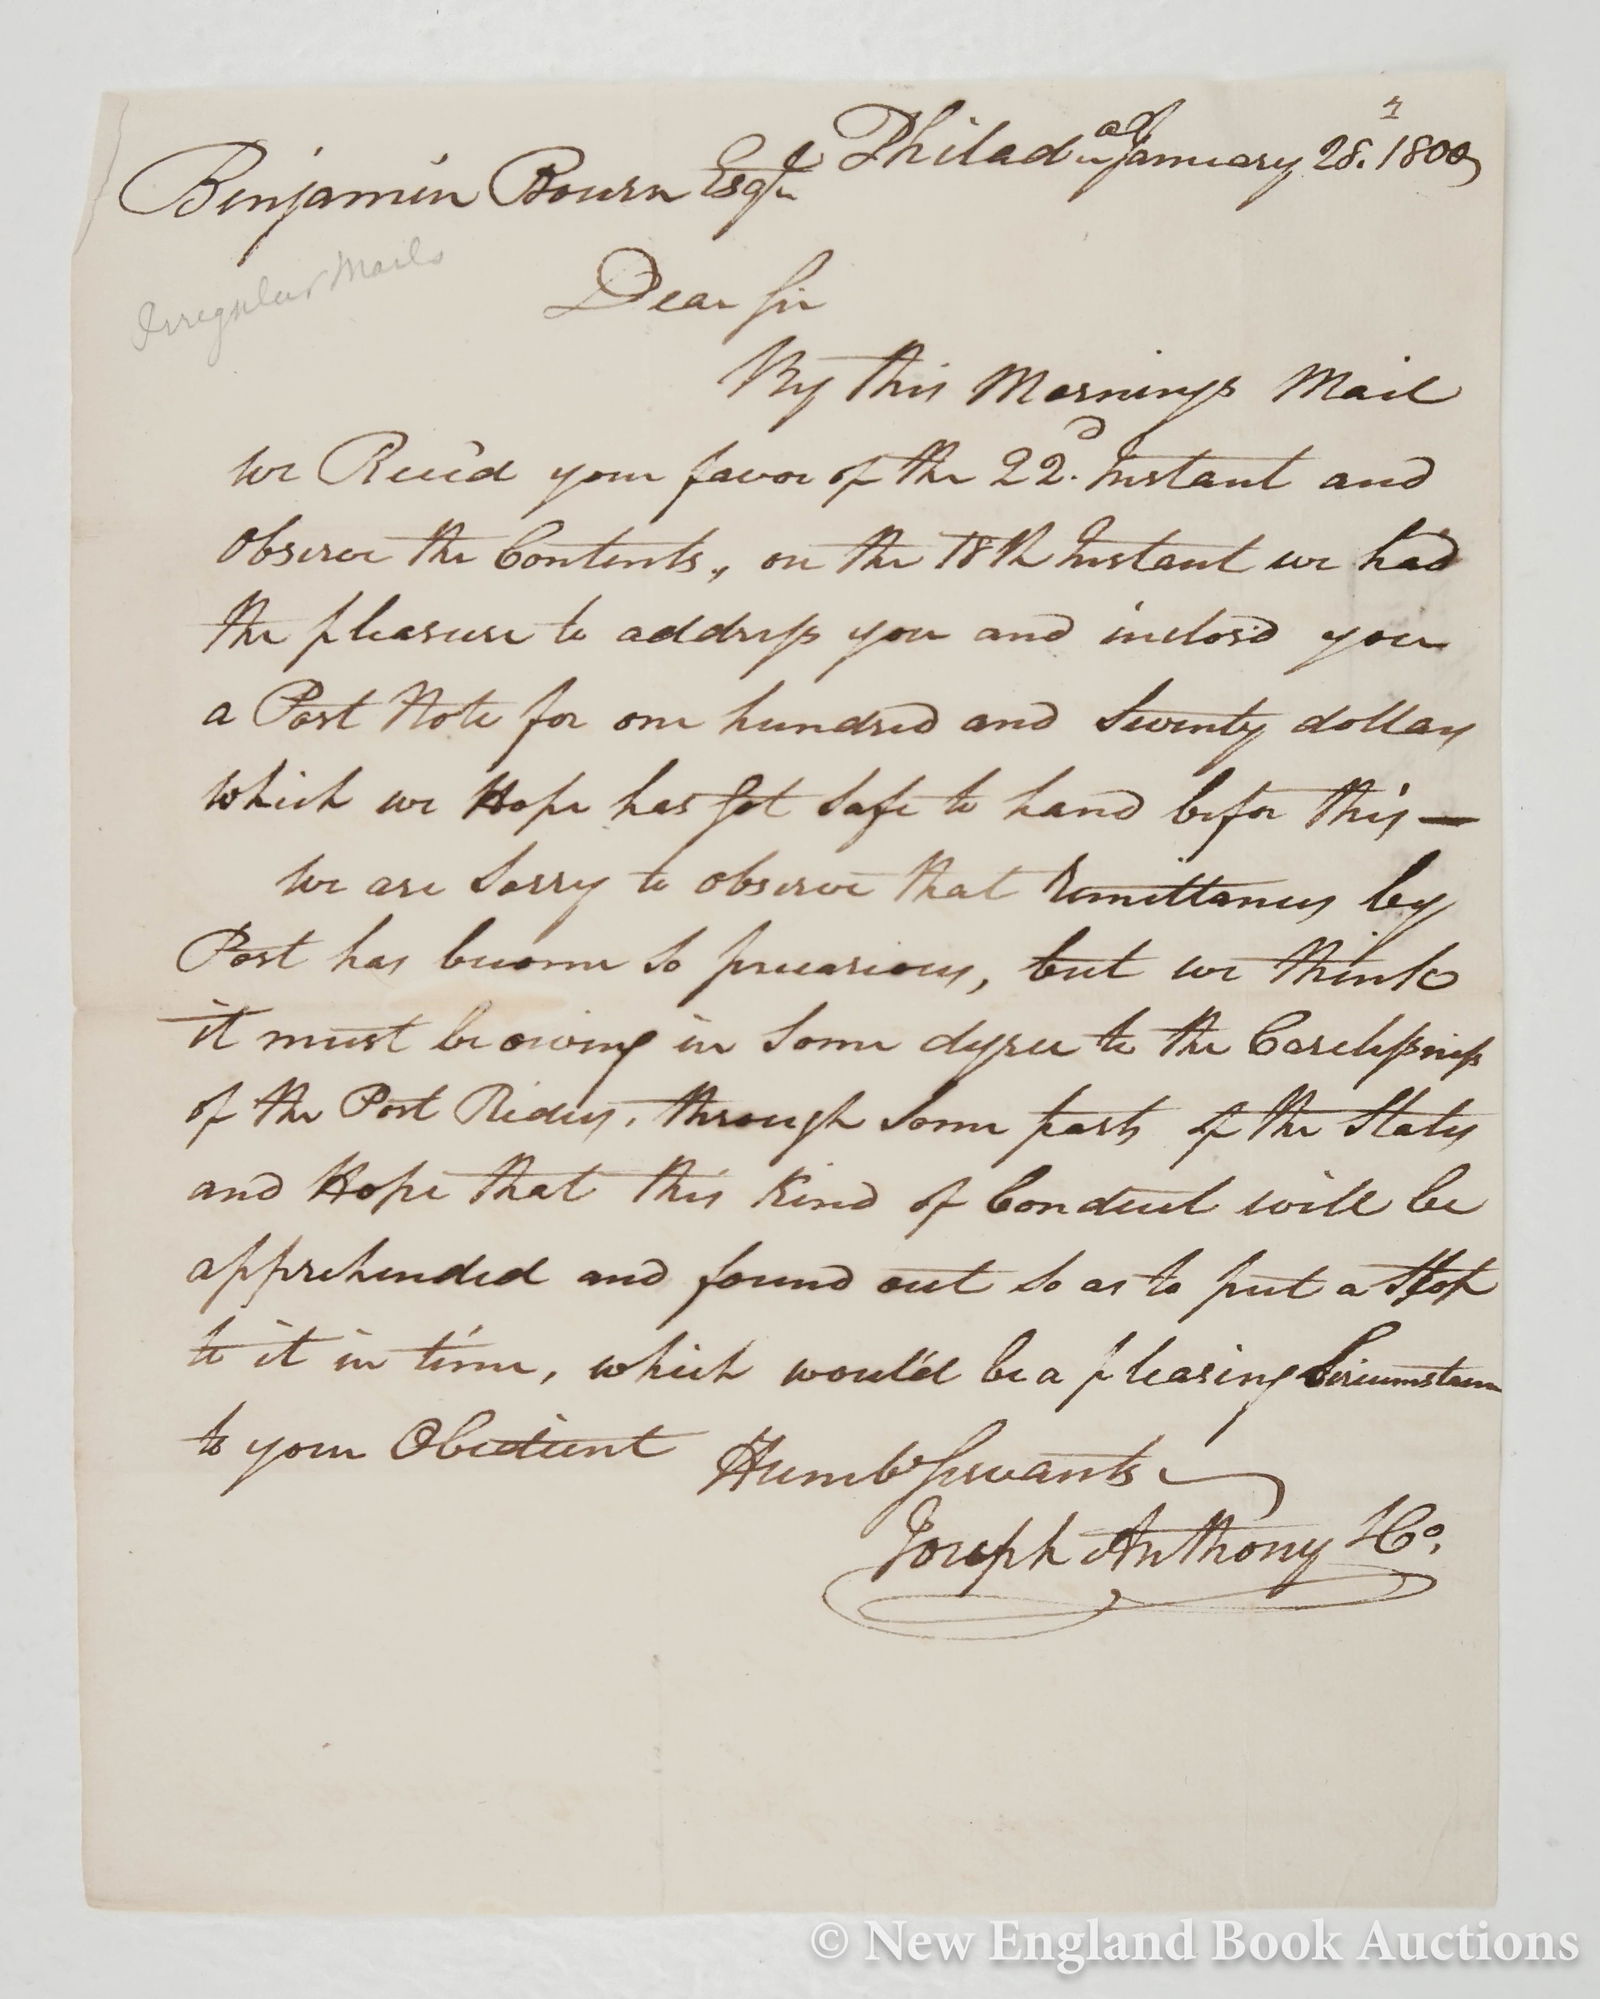 Philad.a January 28. 1800
Benjamin Bourn Esqr.
Irregular Mails
Dear Sir
By this Mornings Mail
we Receíd your favor of the 22d. Instant and
observe the Contents, on the 18th Instant we had
the pleasure to address you and inclos'd you
a Post Note for one hundred and Seventy dollars
which we Hope has Got Safe to hand befor this —
we are Sorry to observe that Remittances by
Post has become so precarious, but we think
it must be owing in Some degree to the Carelessness
of the Post Riders, through Some parts of the States
and Hope that this Kind of Conduct will be
apprehended and found out so as to put a Stop
to it in time, which would be a pleasing Circumstance
to your Obedient Humbe Servants
Joseph Anthony & Co.
© New England Book Auctions